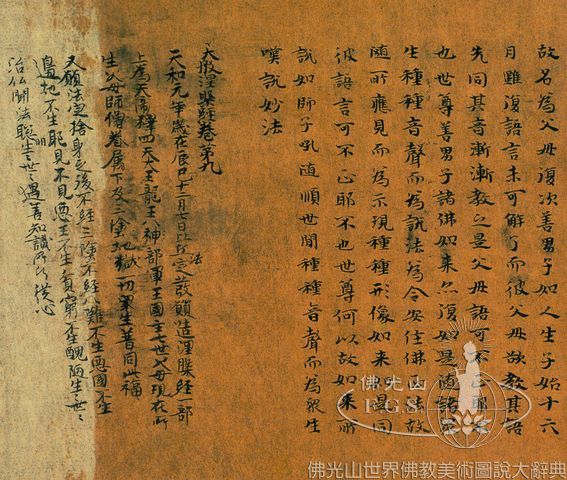 故名為父母復次善男子如人生子始十六
月雖復語言未可解了而彼父母欲教其語
先同其音漸漸教之是父母語可不正耶不
也世尊善男子諸佛如來亦復如是隨諸眾
生種種音聲而為說法為令安住佛正法故
隨所應見而為示現種種形像如來是同
彼語言可不正耶不也世尊何以故如來所
說如師子吼隨順世間種種音聲而為眾生
嘆說妙法
大般涅槃經卷第九
天和元年歲在辰巳十二月七日比丘法定發願造涅槃經一部
上為天帝釋四天王龍王神部國王國主七世父母現在所
生父母師僧眷屬下及三塗地獄一切眾生普同此福
又願法定捨身之後不經三塗不經八難不生惡國不生
邊地不生耶見不見惡王不生貧窮不生醜陋生生世世
治仏聞法聰明生生世世遇善知識所行從心
佛光山
F.G.S.
佛光山世界佛教美術圖說大辭典